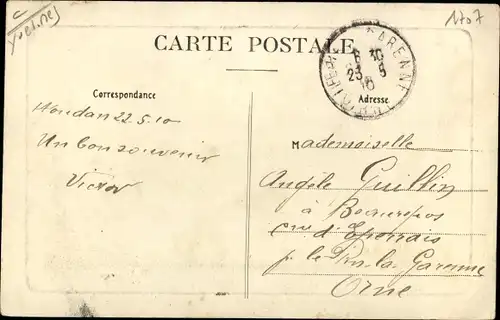 Yvelines
1707
CARTE POSTALE
GARENNE
6 30
23 5
10
Correspondance
Adresse
Houdan 22.5.10
Un bon souvenir
Victor
Mademoiselle
Angèle Guillin
à Beaurepos
cne d'Eperrais
p. le Pin-la-Garenne
Orne